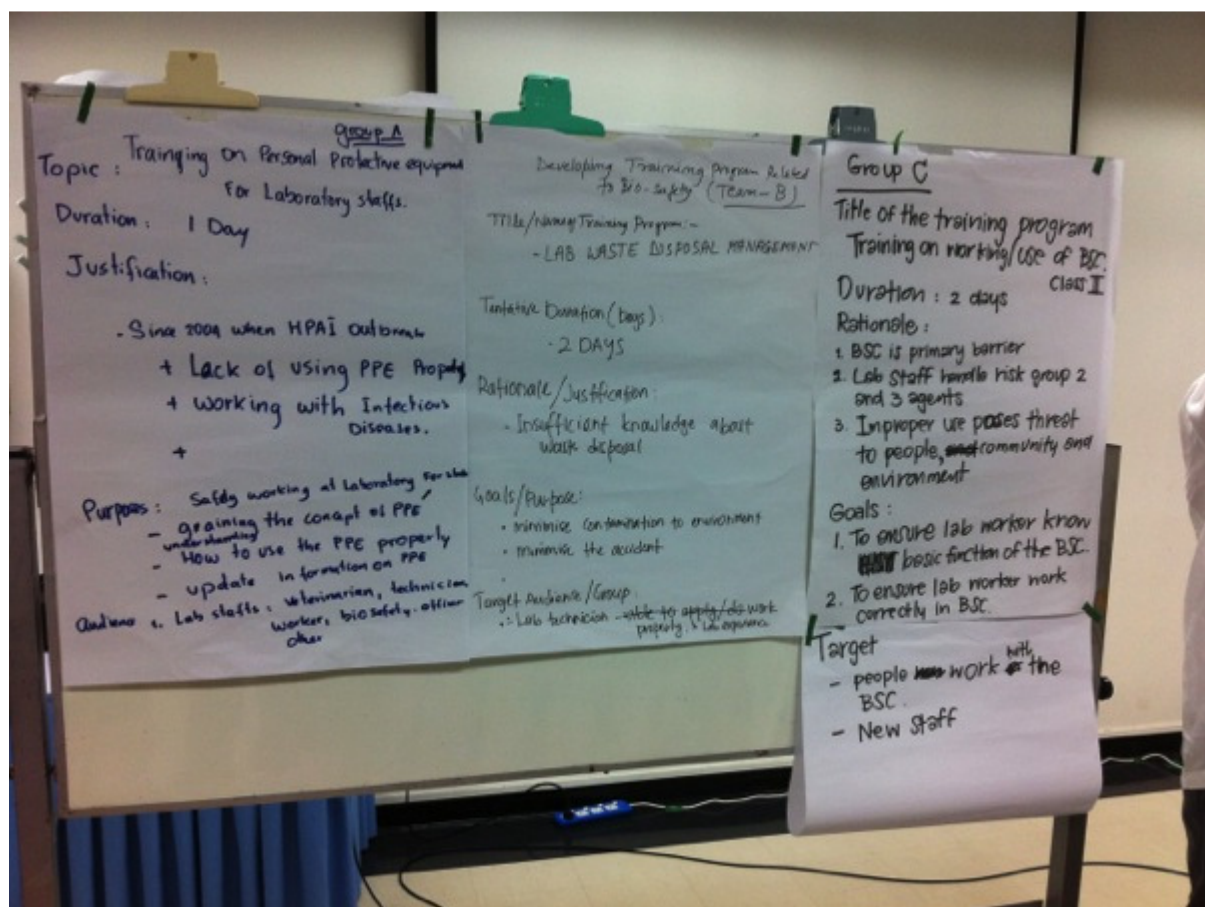 group A
Topic : Trainging on Personal Protective equipment
For Laboratory staffs.
Duration : 1 Day
Justification :
- Since 2004 when HPAI outbreak
+ Lack of using PPE Properly
+ working with Infectious
Diseases.
+
Purposes : Safely working at Laboratory For
- graining the concept of PPE
understanding
- How to use the PPE properly
- update information on PPE
Audience : Lab staffs : veterinarian, technician
worker, biosafety officer
other
Developing Trainning Program Related
to Bio-safety (Team-B)
Title/Name of Training Program:-
- LAB WASTE DISPOSAL MANAGEMENT
Tentative Duration (Days) :
- 2 DAYS
Rationale/Justification :
- Insufficient knowledge about
waste disposal
Goals/Purpose:
• minimise contamination to environment
• minimise the accident
Target Audience/Group :
Lab technician able to apply/do work
properly. Lab experience
Group C
Title of the training program
Training on working/use of BSC
Class II
Duration : 2 days
Rationale :
1. BSC is primary barrier
2. Lab staff handle risk group 2
and 3 agents
3. Improper use poses threat
to people, and community and
environment
Goals :
1. To ensure lab worker know
basic function of the BSC.
2. To ensure lab worker work
correctly in BSC.
Target
- people work with the
BSC.
- New Staff